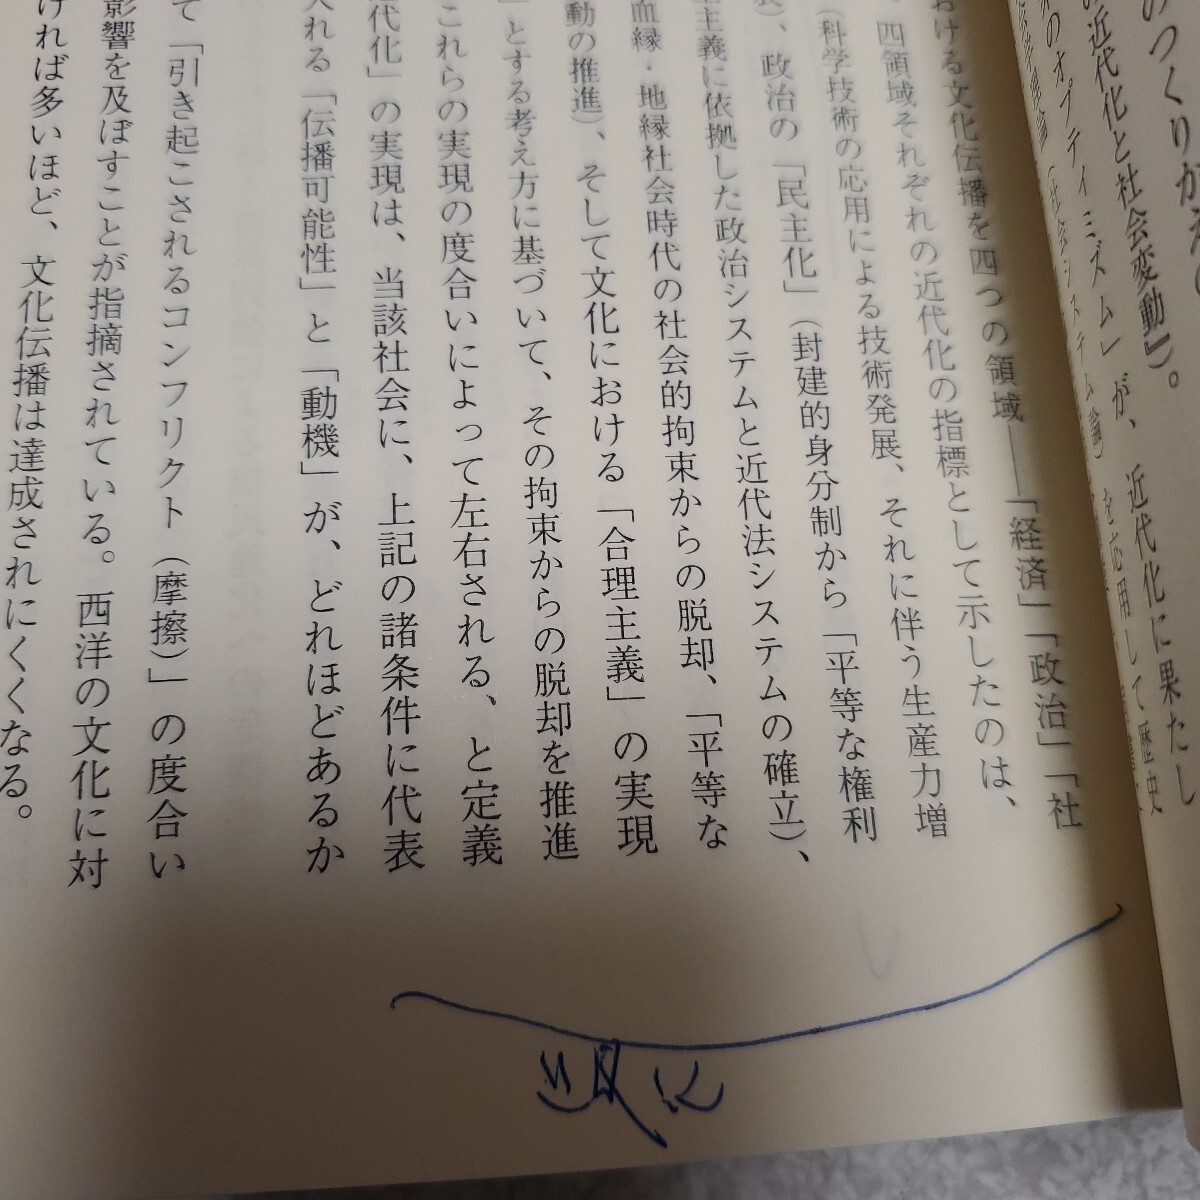 のつくりかえ
の近代化と社会変動』)。
のオプティミズム」が、近代化に果たし
社会システム論)を応用して歴史
おける文化伝播を四つの領域──「経済」「政治」「社
四領域それぞれの近代化の指標として示したのは、
(科学技術の応用による技術発展、それに伴う生産力増
、政治の「民主化」(封建的身分制から「平等な権利
主義に依拠した政治システムと近代法システムの確立)、
血縁・地縁社会時代の社会的拘束からの脱却、「平等な
動の推進)、そして文化における「合理主義」の実現
」とする考え方に基づいて、その拘束からの脱却を推進
これらの実現の度合いによって左右される、と定義
近代化」の実現は、当該社会に、上記の諸条件に代表
入れる「伝播可能性」と「動機」が、どれほどあるか
て「引き起こされるコンフリクト(摩擦)」の度合い
影響を及ぼすことが指摘されている。西洋の文化に対
ければ多いほど、文化伝播は達成されにくくなる。